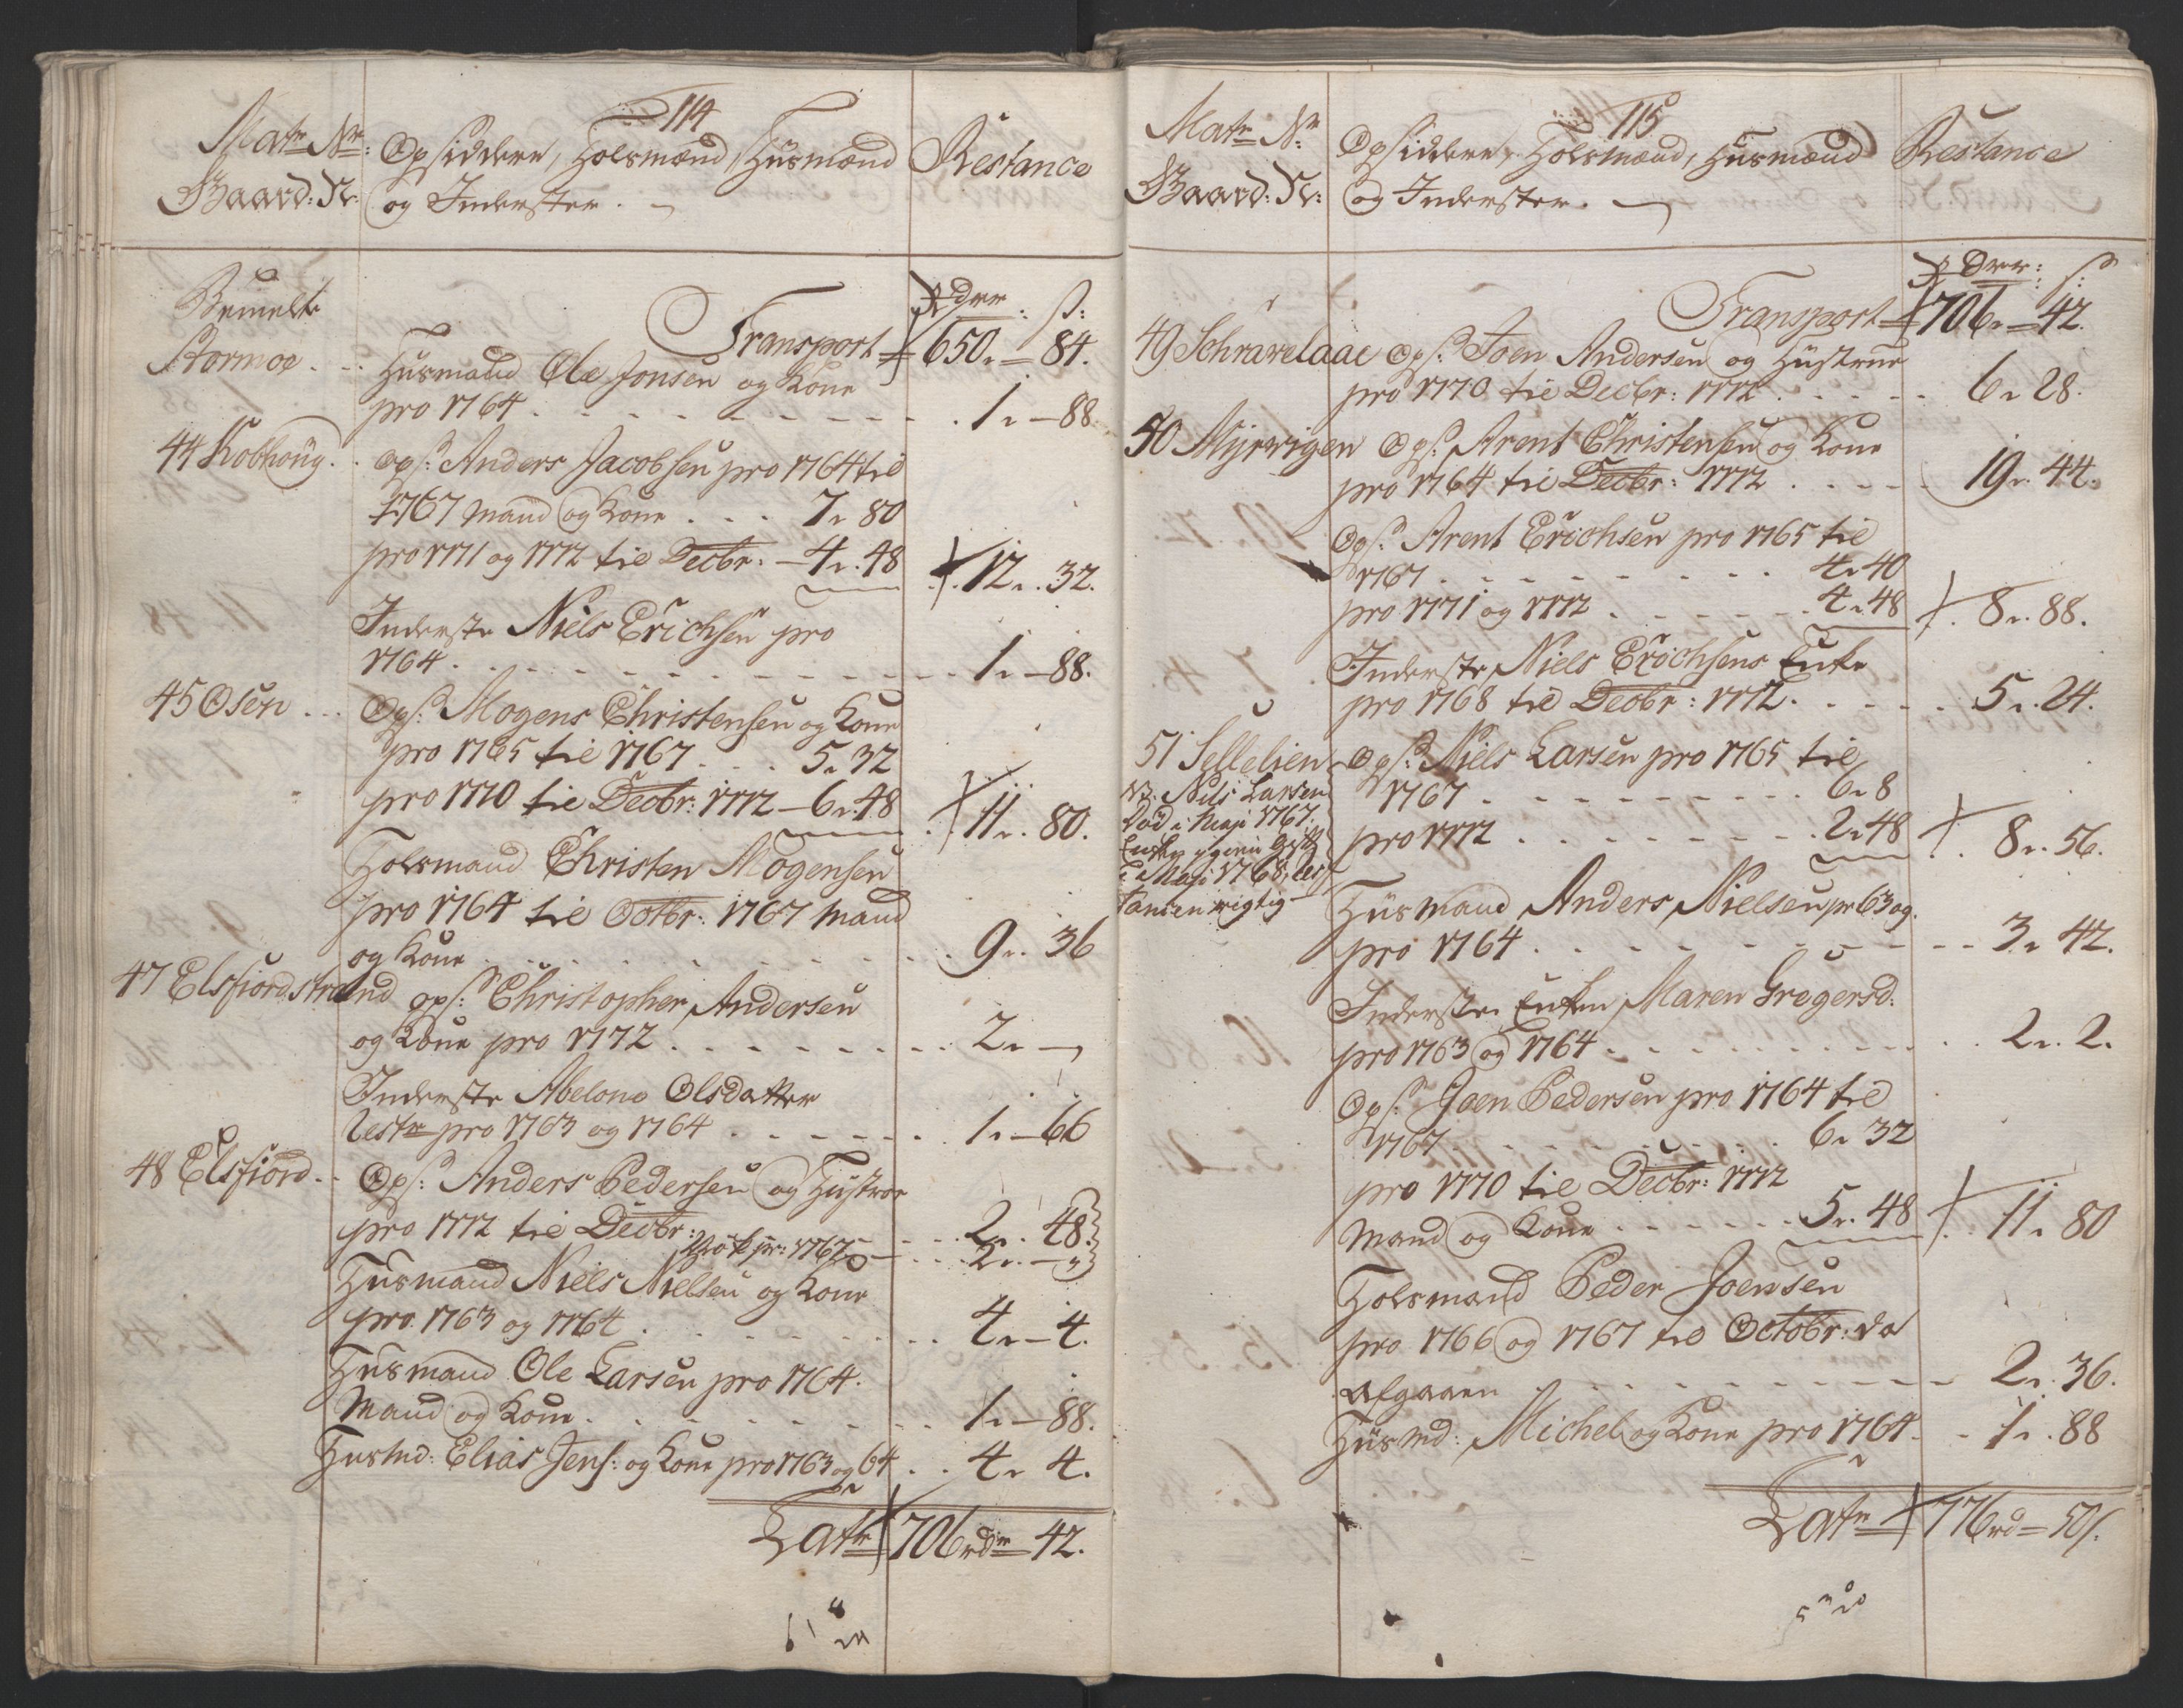 114
Matr Nr:
Gaard: N:
Opsiddere, Folsmænd, Husmænd
og Inderster.
Restance
Bemelte
Stormoe
rdrr: s:
Transport 650 - 84.
Husmand Ole Jonsen og Kone
pro 1764 . . . 1 - 88.
44 Kobhoug . . Ops: Anders Jacobsen pro 1764 til
1767 Mand og Kone . . . 7 80
pro 1771 og 1772 til Decbr: 4 48 12 32.
Inderste Niels Erichsen pro
1764 . . . 1 - 88.
45 Osen . . . Ops: Mogens Christensen og Kone
pro 1765 til 1767 . . . 5 32
pro 1770 til Decbr: 1772 - 6 48 11 80.
Folsmand Christen Mogensen
pro 1764 til Octbr: 1767 Mand
og Kone . . . 9 36
47 Elsfiordstrand ops: Christopher Andersen
og Kone pro 1772 . . . 2 -
Inderste Abelone Olsdatter
Rest pro 1763 og 1764 . . . 1 - 66
48 Elsfiord . . Ops: Anders Pedersen og Hustroe
pro 1772 til Decbr: . . . 2 48
pr: 1767 . . . 2 -
Husmand Niels Nielsen og Kone
pro 1763 og 1764 . . . 4 - 4.
Husmand Ole Larsen pro 1764.
Mand og Kone . . . 1 - 88.
Husmd: Elias Jens: og Kone pro 1763 og 64 . . 4 4.
Latr 706 rdr 42.
115
Matr Nr:
Gaard: N:
Opsiddere, Folsmænd, Husmænd
og Inderster.
Restance
rdrr: s:
Transport 706 - 42.
49 Schravelaae Ops: Joen Andersen og Hustrue
pro 1770 til Decbr: 1772 . . . 6 28.
50 Myrvigen Ops: Arent Christensen og Kone
pro 1764 til Decbr: 1772 . . . 19 44.
Ops: Arent Erichsen pro 1765 til
1767 . . . 4 40
pro 1771 og 1772 . . . 4 48 8 88.
Inderste, Niels Erichsens Enke
pro 1768 til Decbr: 1772 . . . 5 24.
51 Sellelien Ops: Niels Larsen pro 1765 til
1767 . . . 6 8
pro 1772 . . . 2 48 8 56.
NB. Nils Larsen
Död i Maji 1767.
Enken igien gift
i Maji 1768, Res
tancen rigtig
Husmand Anders Nielsen pr 63 og
pro 1764 . . . 3 42.
Inderste Enken Maren Gregersd:
pro 1763 og 1764 . . . 2 2.
Ops: Joen Pedersen pro 1764 til
1767 . . . 6 32
pro 1770 til Decbr: 1772
Mand og Kone . . . 5 48 11 80
Folsmand Peder Joensen
pro 1766 og 1767 til Octobr: da
afgaaen . . . 2 36.
Husmd: Michel og Kone pro 1764. - 1 88
Latr 776 rd - 50 s.